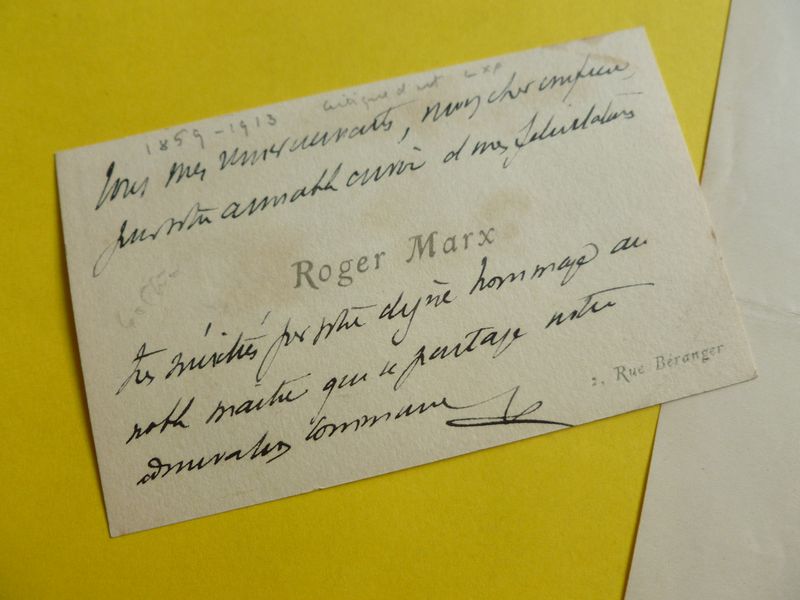 1859-1913 critique d'art
Tous mes remerciements, mon cher confrère,
pour votre aimable envoi et mes félicitations
Roger Marx
très méritées par votre digne hommage au
noble maître que se partage notre
admiration commune
2, Rue Béranger